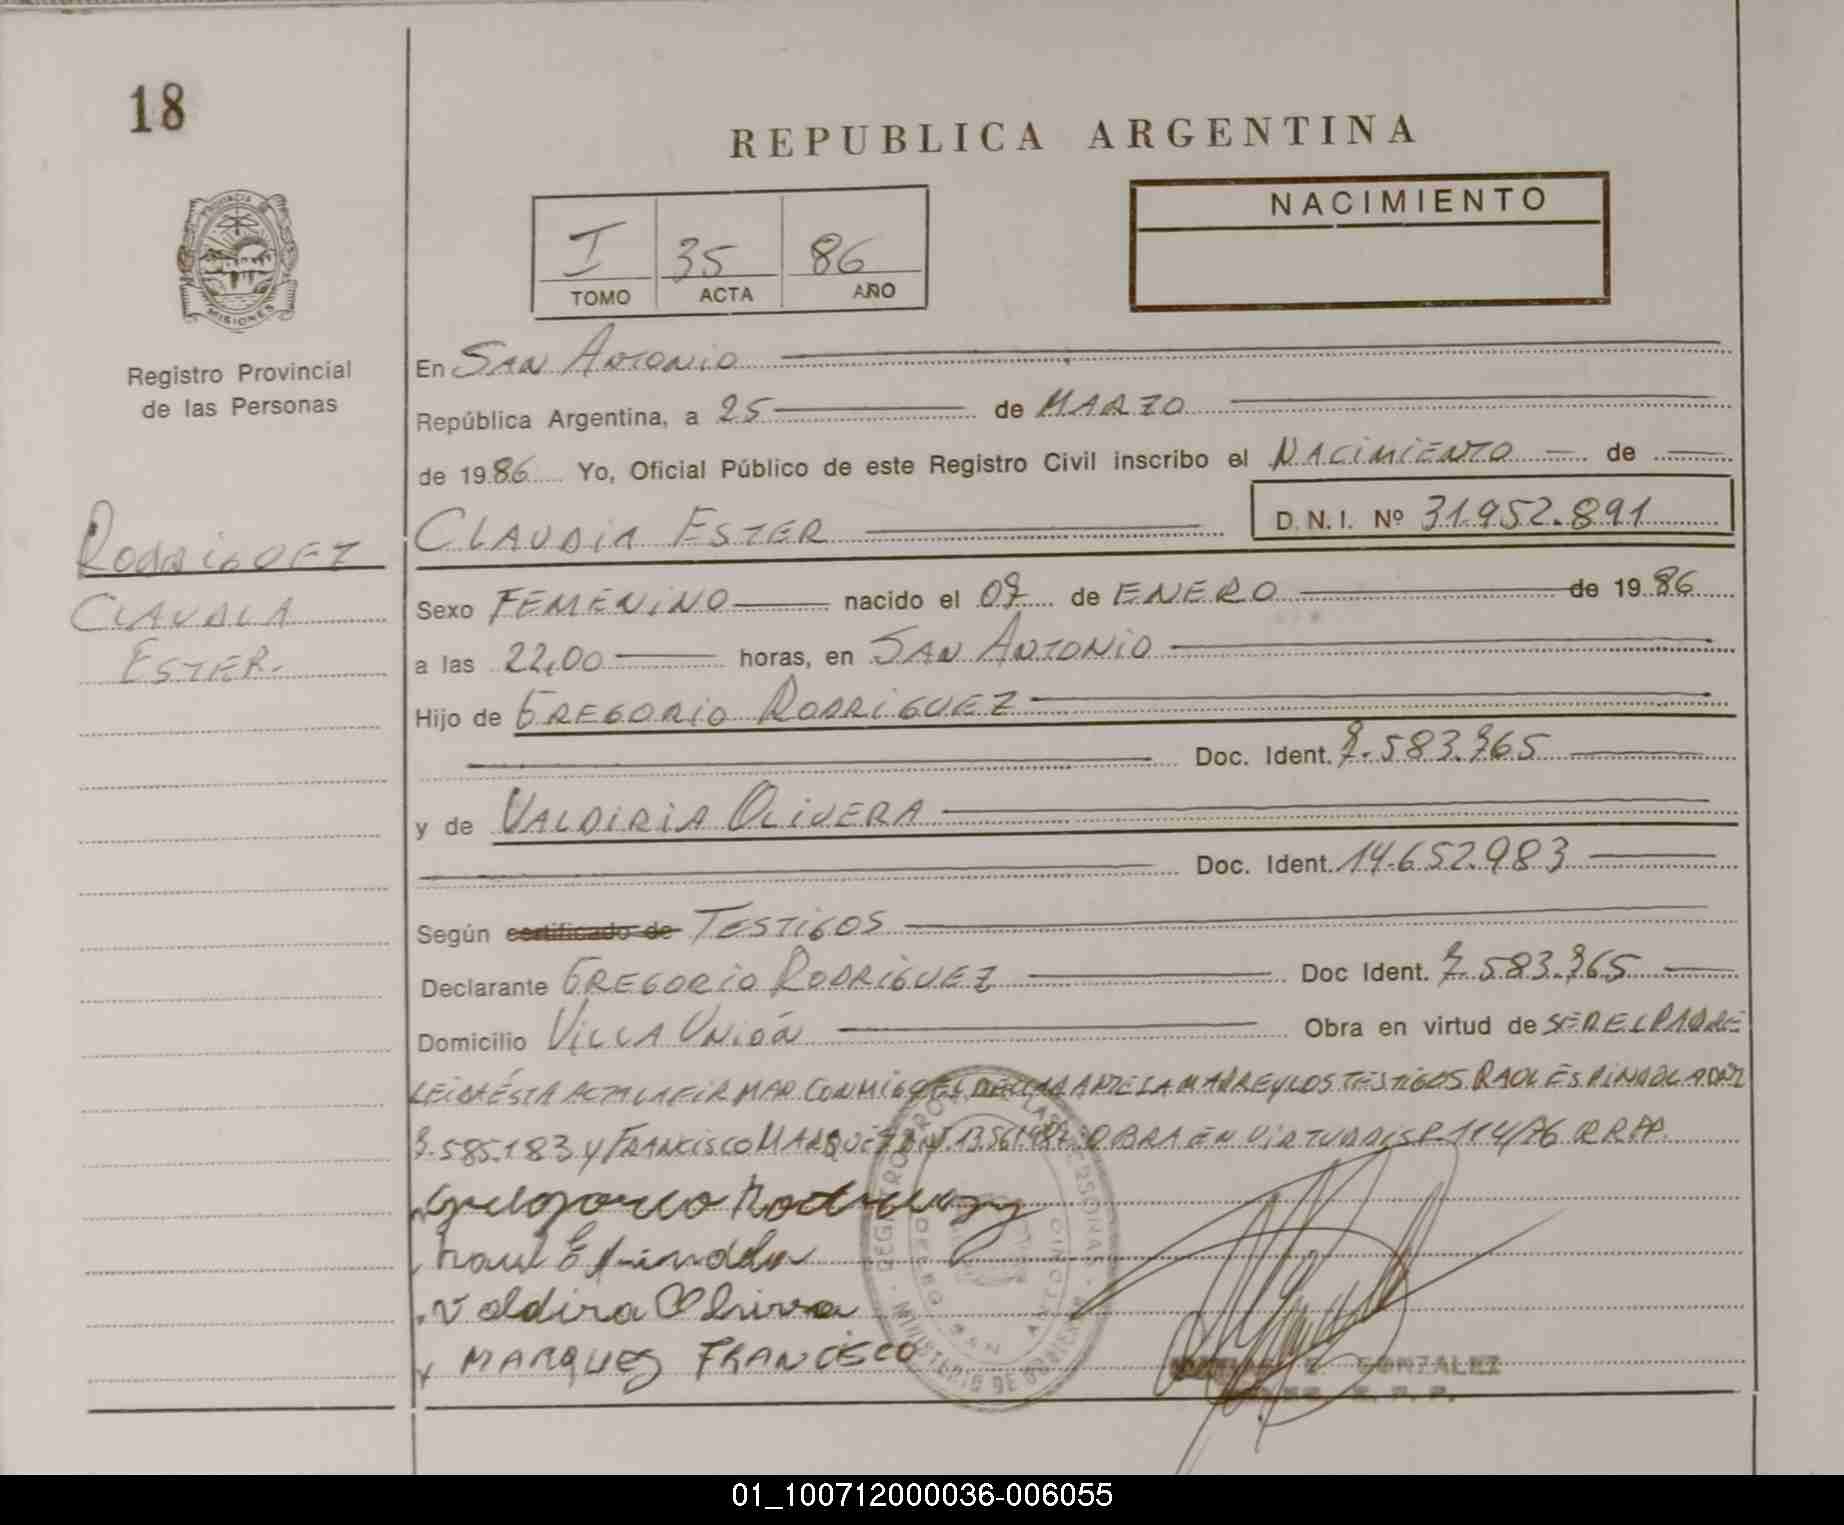 18
REPUBLICA ARGENTINA
NACIMIENTO
I 35 86
TOMO ACTA AÑO
PROVINCIA DE
MISIONES
Registro Provincial
de las Personas
RODRIGUEZ
CLAUDIA
ESTER.
En SAN ANTONIO
República Argentina, a 25 de MARZO
de 1986 Yo, Oficial Público de este Registro Civil inscribo el NACIMIENTO de
CLAUDIA ESTER D.N.I. Nº 31.952.891
Sexo FEMENINO nacido el de ENERO de 1986
a las 22,00 horas, en SAN ANTONIO
Hijo de GREGORIO RODRIGUEZ
Doc. Ident. 7.583.765
y de VALDIRIA OLIVERA
Doc. Ident. 14.652.983
Según certificado de TESTIGOS
Declarante GREGORIO RODRIGUEZ Doc Ident. 7.583.765
Domicilio VILLA UNIÓN Obra en virtud de SER EL PADRE
LEIDA ÉSTA ACTA LA FIRMAN CONMIGO EL DECLARANTE LA MADRE Y LOS TESTIGOS RAUL ESPINDOLA DNI
585.183 Y FRANCISCO MARQUEZ OBRA EN VIRTUD DISP. 114/76 R.R.P.P.
Gregorio Rodriguez
Raul Espindola
Valdira Olivera
MARQUEZ FRANCISCO
GONZALEZ
01_100712000036-006055